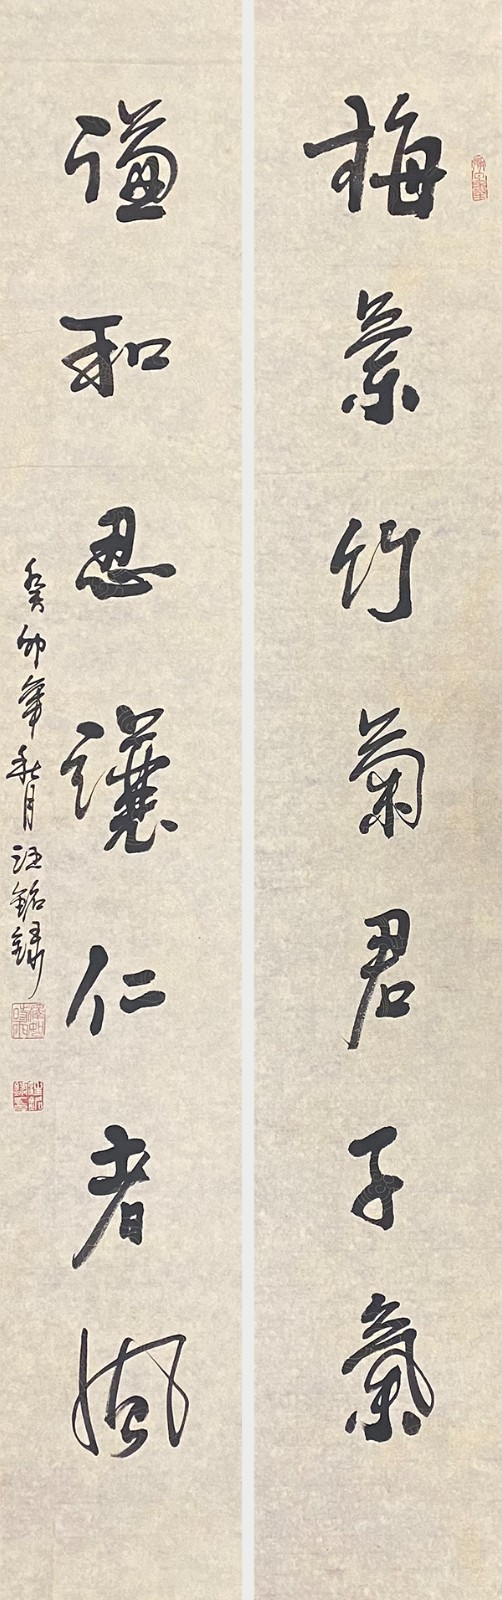 梅蘭竹菊君子氣
謙和忍讓仁者風
癸卯年秋月汪銘